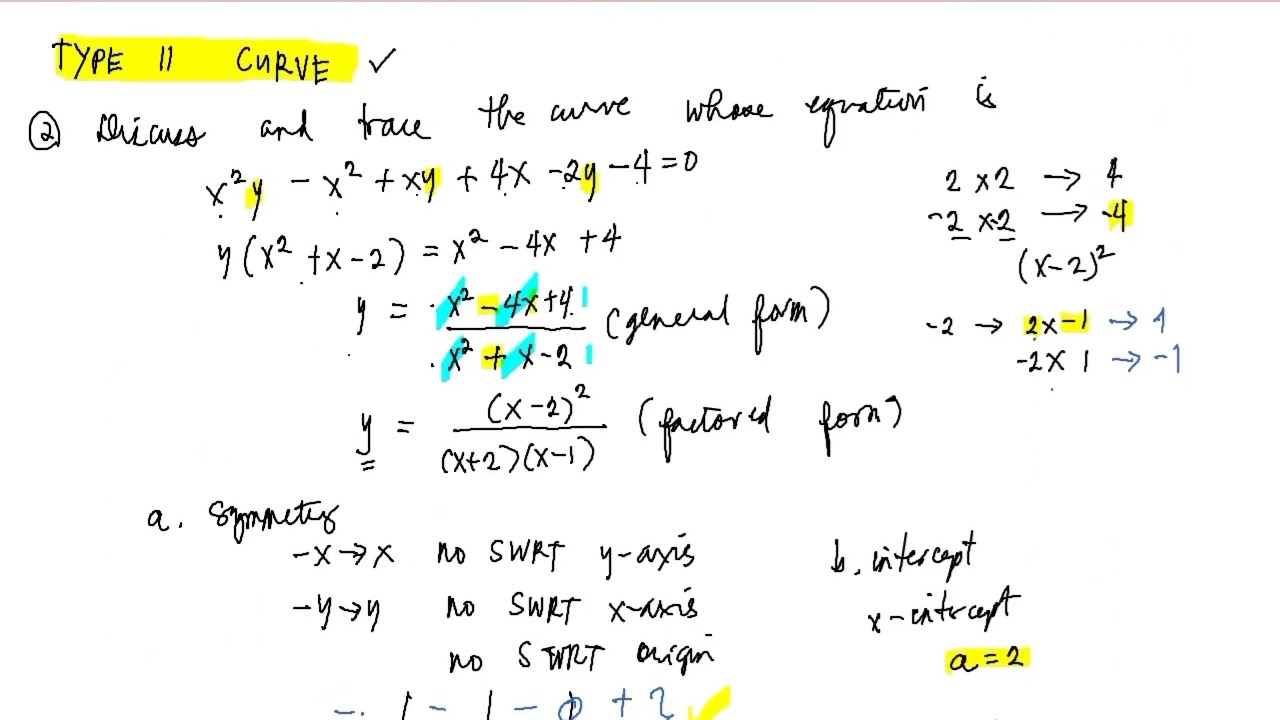 TYPE II CURVE ✓
② Discuss and trace the curve whose equation is
x²y - x² + xy + 4x - 2y - 4 = 0
y(x² + x - 2) = x² - 4x + 4
y = x² - 4x + 4 / x² + x - 2 (general form)
y = (x-2)² / (x+2)(x-1) (factored form)
2 x 2 → 4
-2 x -2 → -4
(x-2)²
-2 → 2x -1 → 1
-2 x 1 → -1
a. Symmetry
-x → x no SWRT y-axis
-y → y no SWRT x-axis
no SWRT origin
b. intercept
x-intercept
a = 2